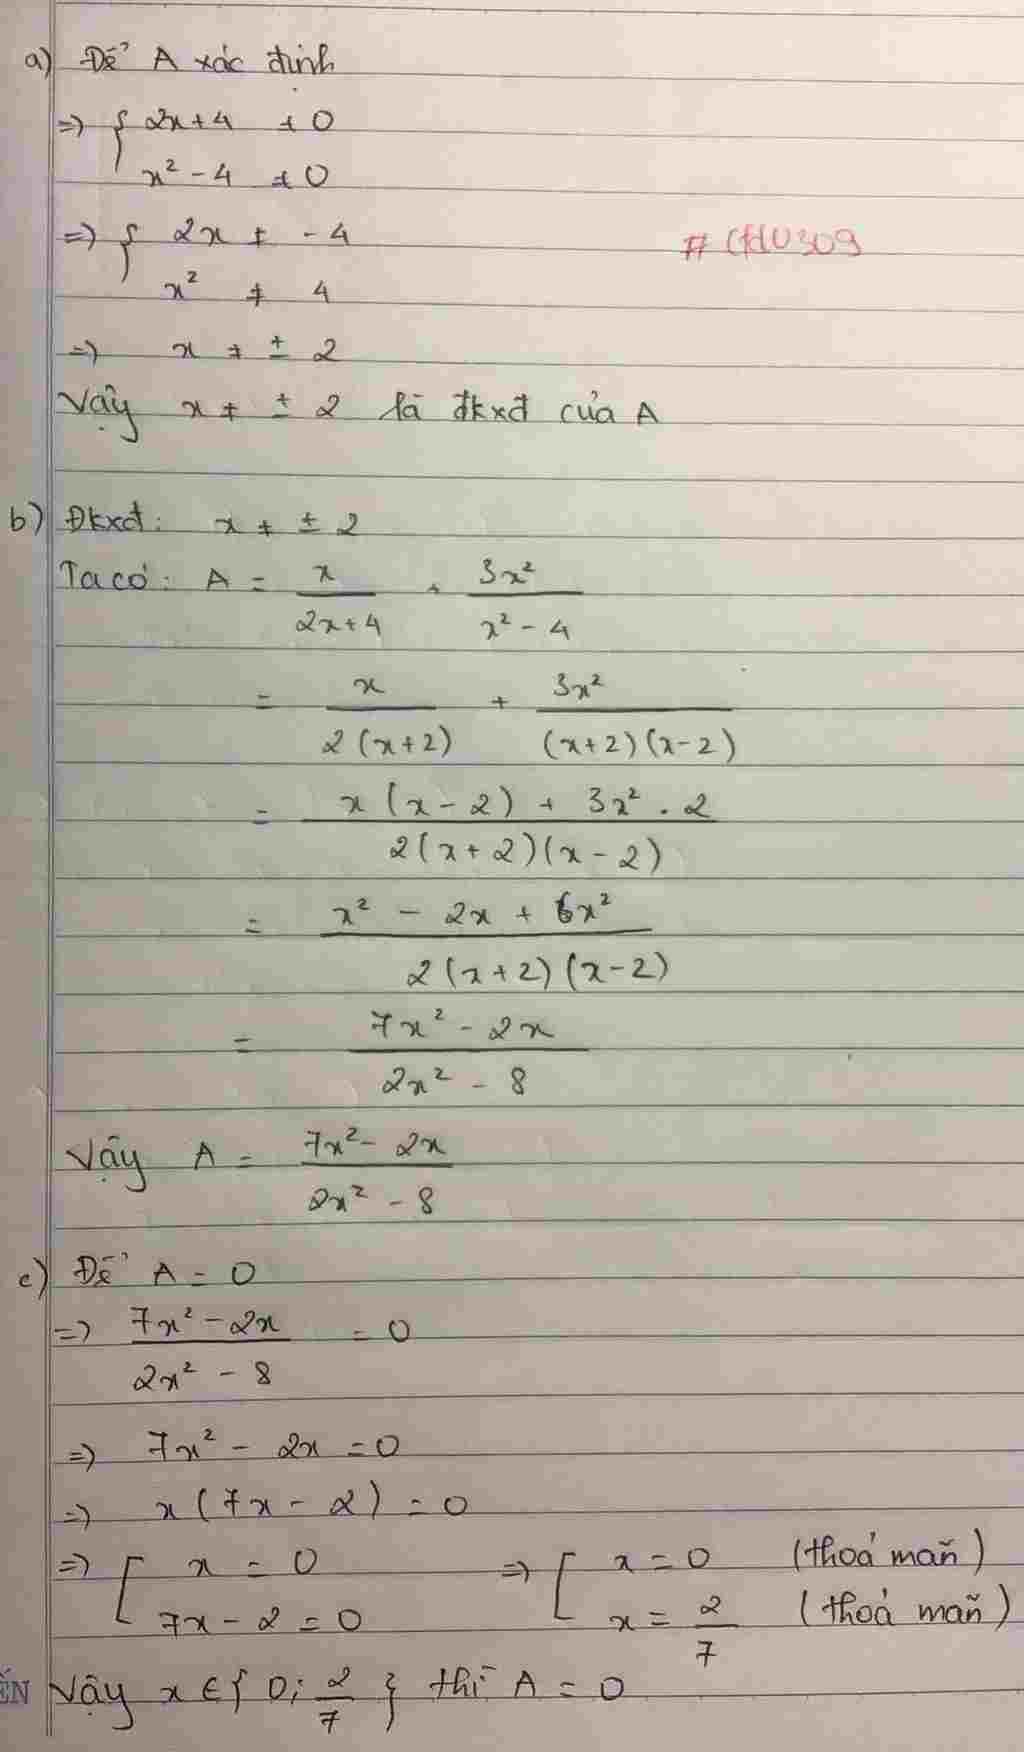 a) Để A xác định
=> { 2x+4 ≠ 0
x² - 4 ≠ 0
=> { 2x ≠ -4
x² ≠ 4
# CHU309
=> x ≠ ± 2
Vậy x ≠ ± 2 là đkxđ của A
b) Đkxđ: x ≠ ± 2
Ta có: A = x/(2x+4) + 3x²/(x² - 4)
= x/(2(x+2)) + 3x²/((x+2)(x-2))
= (x(x-2) + 3x² . 2)/(2(x+2)(x-2))
= (x² - 2x + 6x²)/(2(x+2)(x-2))
= (7x² - 2x)/(2x² - 8)
Vậy A = (7x² - 2x)/(2x² - 8)
c) Để A = 0
=> (7x² - 2x)/(2x² - 8) = 0
=> 7x² - 2x = 0
=> x(7x - 2) = 0
=> [ x = 0 => [ x = 0 (thoả mãn)
7x - 2 = 0 x = 2/7 (thoả mãn)
Vậy x ∈ { 0; 2/7 } thì A = 0